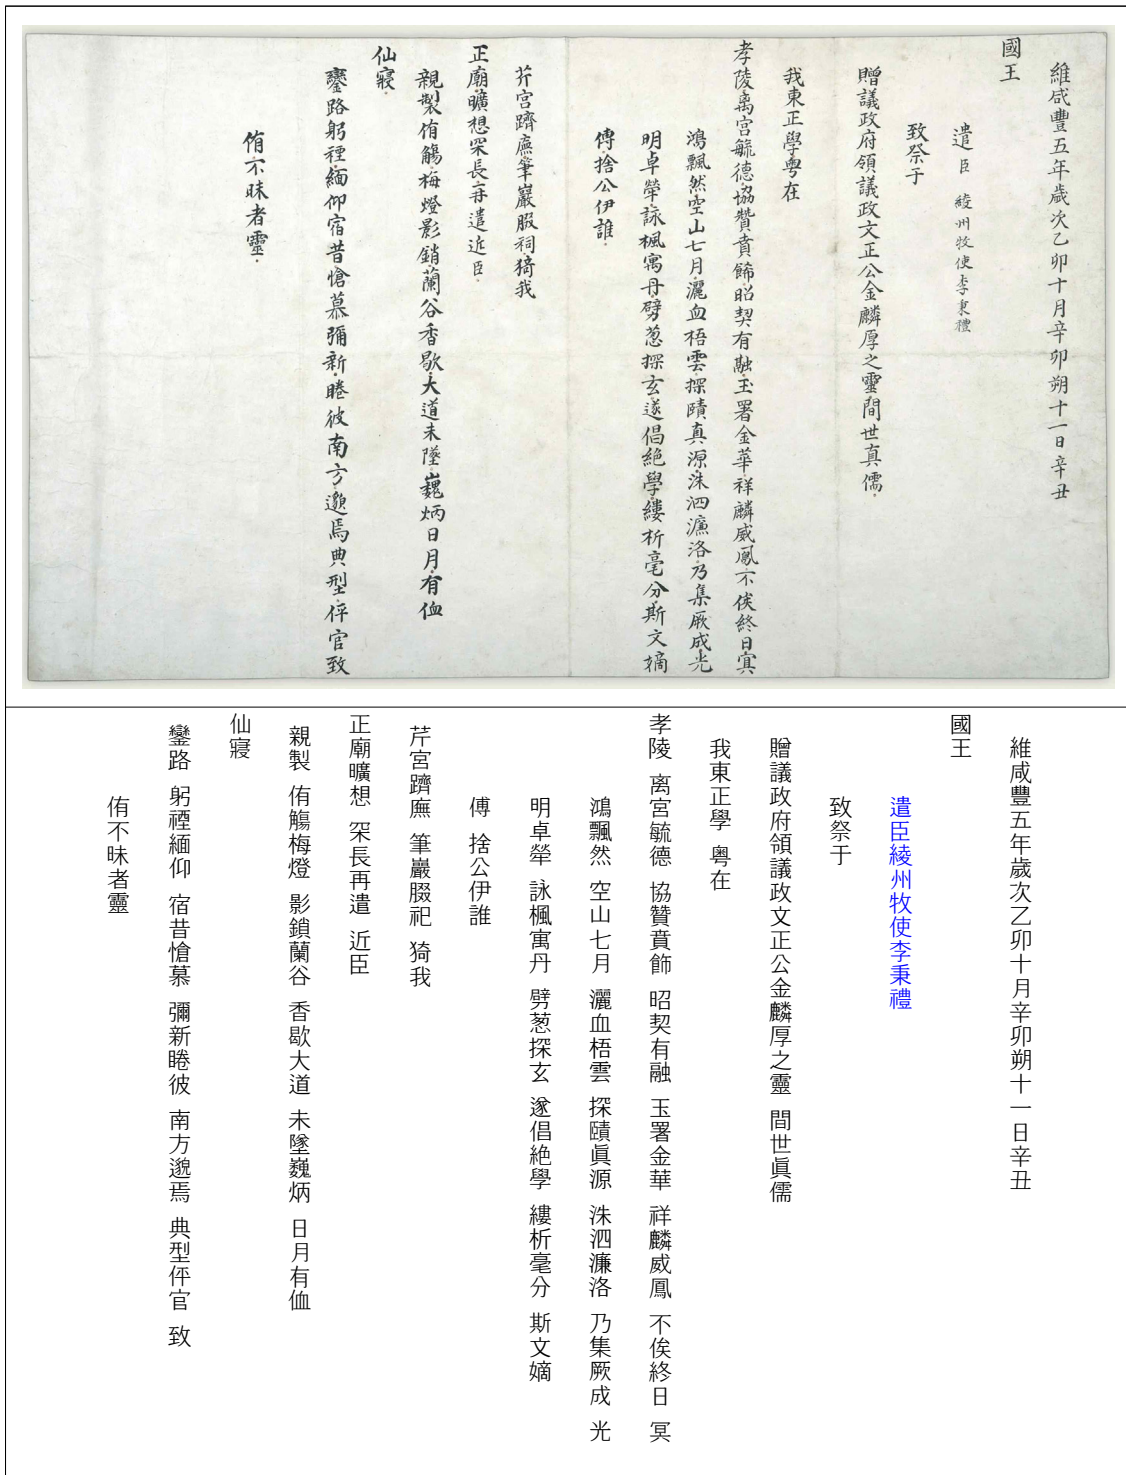 維咸豐五年歲次乙卯十月辛卯朔十一日辛丑
國王
遣臣 綾州牧使李秉禮
致祭于
贈議政府領議政文正公金麟厚之靈間世真儒
我東正學粤在
孝陵离宮毓德協贊賁餙昭契有融玉署金華祥麟威鳳不俟終日㝠
鴻飄然空山七月灑血梧雲探賾真源洙泗濂洛乃集厥成光
明卓犖詠楓寓丹劈葱探玄遂倡絶學縷析毫分斯文嫡
傅捨公伊誰
芹宮躋廡筆巖腏祠猗我
正廟曠想罙長再遣近臣
親製侑觴梅燈影銷蘭谷香歇大道未墜巍炳日月有侐
仙寢
鑾路躬禋緬仰宿昔愴慕彌新睠彼南方邈焉典型伻官致
侑不昧者靈
維咸豐五年歲次乙卯十月辛卯朔十一日辛丑
國王
遣臣綾州牧使李秉禮
致祭于
贈議政府領議政文正公金麟厚之靈 間世眞儒
我東正學 粤在
孝陵 离宮毓德 協贊賁飾 昭契有融 玉署金華 祥麟威鳳 不俟終日 冥
鴻飄然 空山七月 灑血梧雲 探賾眞源 洙泗濂洛 乃集厥成 光
明卓犖 詠楓寓丹 劈葱探玄 遂倡絶學 縷析毫分 斯文嫡
傅 捨公伊誰
芹宮躋廡 筆巖腏祀 猗我
正廟曠想 罙長再遣 近臣
親製 侑觴梅燈 影鎖蘭谷 香歇大道 未墜巍炳 日月有侐
仙寢
鑾路 躬禋緬仰 宿昔愴慕 彌新睠彼 南方邈焉 典型伻官 致
侑不昧者靈